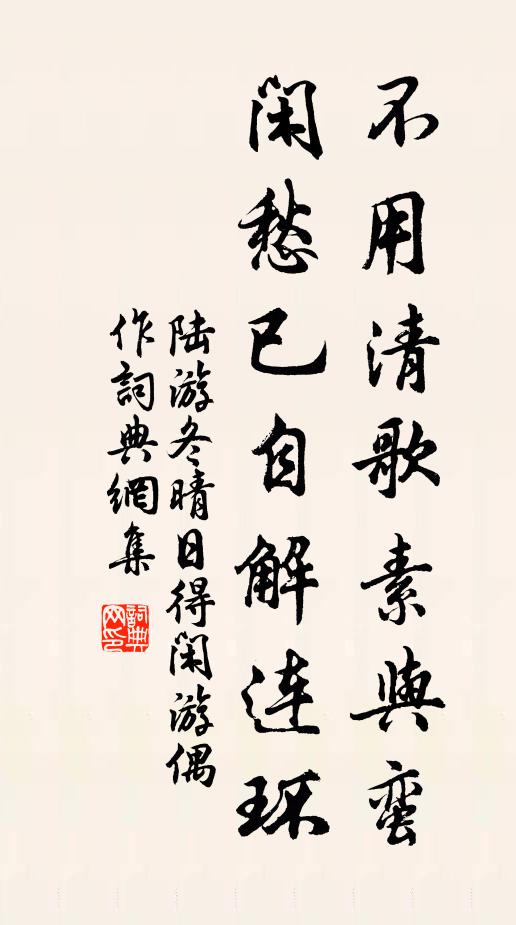 不用清歌素與蠻
闲愁已自解连环
陆游冬晴日得闲游偶
作詞典網集
詞典网印